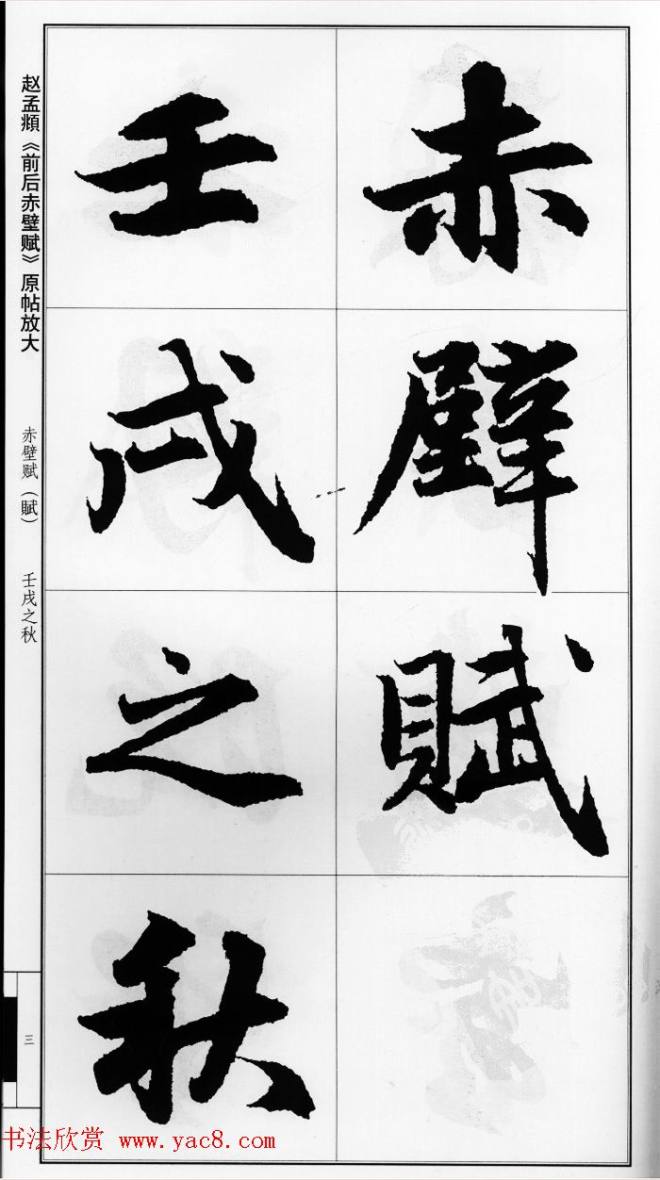 赤壁賦
壬戌之秋
赵孟頫《前后赤壁赋》原帖放大
赤壁赋（賦）
壬戌之秋
三
书法欣赏 www.yac8.com